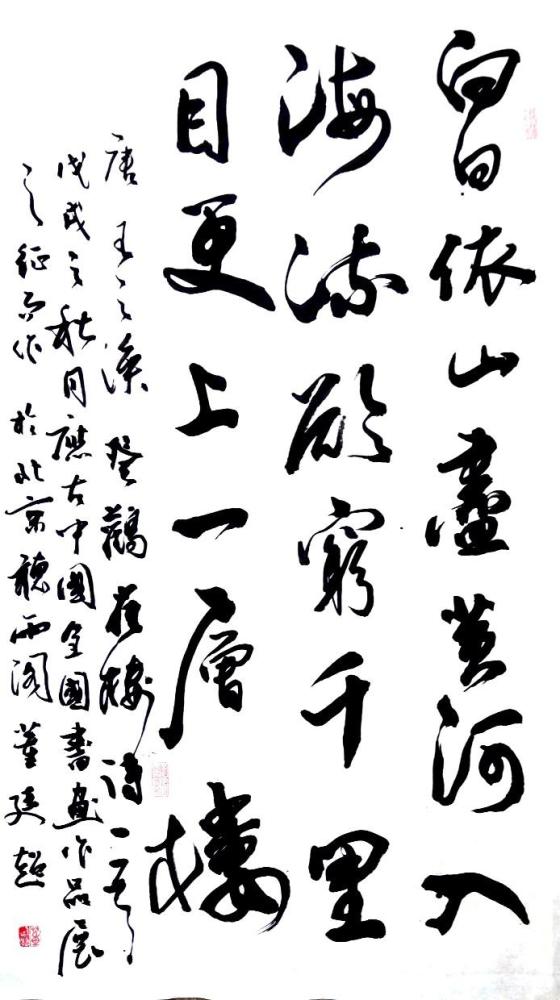 白日依山盡黄河入
海流欲窮千里
目更上一層樓
唐王之渙登鸛雀樓詩一首
戊戌之秋月應中國全國書畫作品展
之征而作於北京聽雨閣董廷超